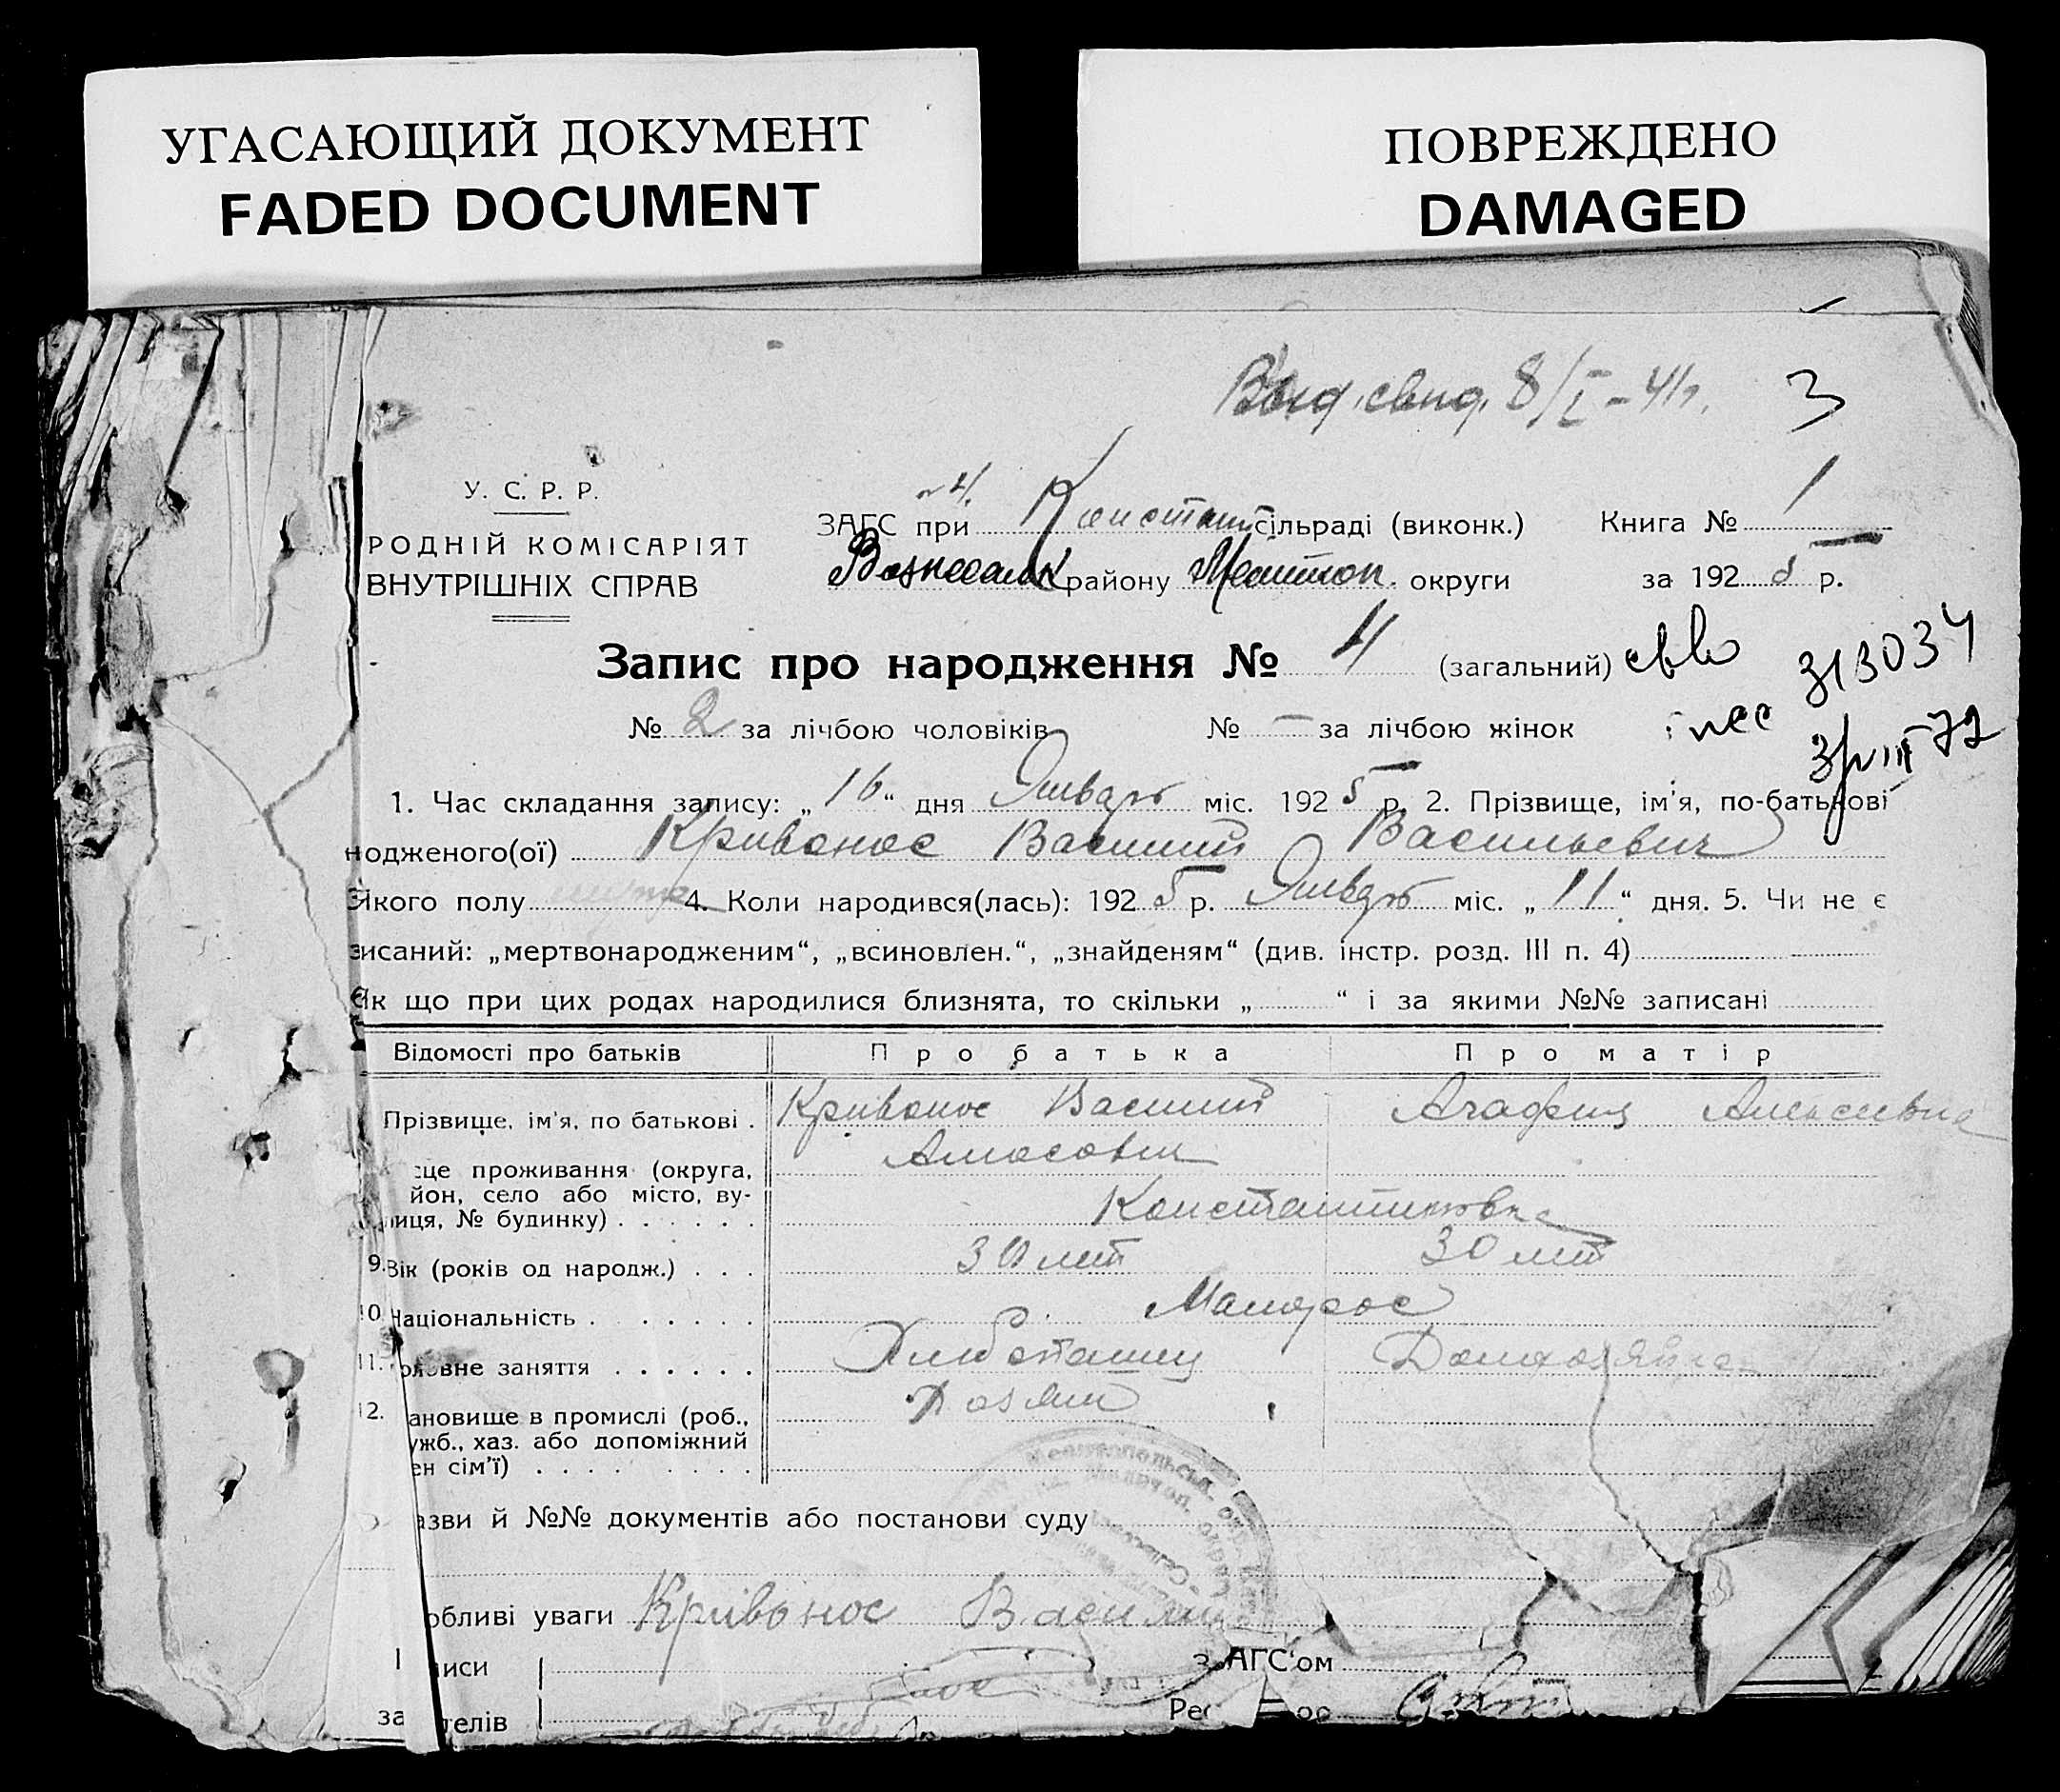 УГАСАЮЩИЙ ДОКУМЕНТ
FADED DOCUMENT
ПОВРЕЖДЕНО
DAMAGED
Выд. свид. 8/I – 41г. 3
У. С. Р. Р.
РОДНІЙ КОМІСАРІЯТ
ВНУТРІШНІХ СПРАВ
ЗАГС при Констант сільраді (виконк.) Книга № 1
району Мелитоп. округи за 1925 р.
Запис про народження № 4 (загальний)
313034
№ 2 за лічбою чоловіків № — за лічбою жінок
1. Час складання запису: „16“ дня Январь міс. 1925 р. 2. Прізвище, ім'я, по-батькові
нодженого(ої) Кривонос Василий Васильевич
Якого полу 4. Коли народився(лась): 1925 р. Январь міс. „11“ дня. 5. Чи не є
зисаний: „мертвонародженим“, „всиновлен.“, „знайденям“ (див. інстр. розд. III п. 4)
Як що при цих родах народилися близнята, то скільки „ “ і за якими №№ записані
Відомості про батьків Про батька Про матір
Прізвище, ім'я, по батькові . Кривонос Василий Агафия Алексевна
сце проживання (округа,
йон, село або місто, ву-
лиця, № будинку) . . . . . . Константиновка
9. Вік (років од народж.) . . . 30 лет 30 лет
10 Національність . . . . . . . Малорос
11. оловне заняття . . . . . .
12. ановище в промислі (роб., Хозяин
ужб., хаз. або допоміжний
ен сім'ї) . . . . . . . .
азви й №№ документів або постанови суду
обливі уваги Крівонос Васили
иси з АГС'ом
за телів